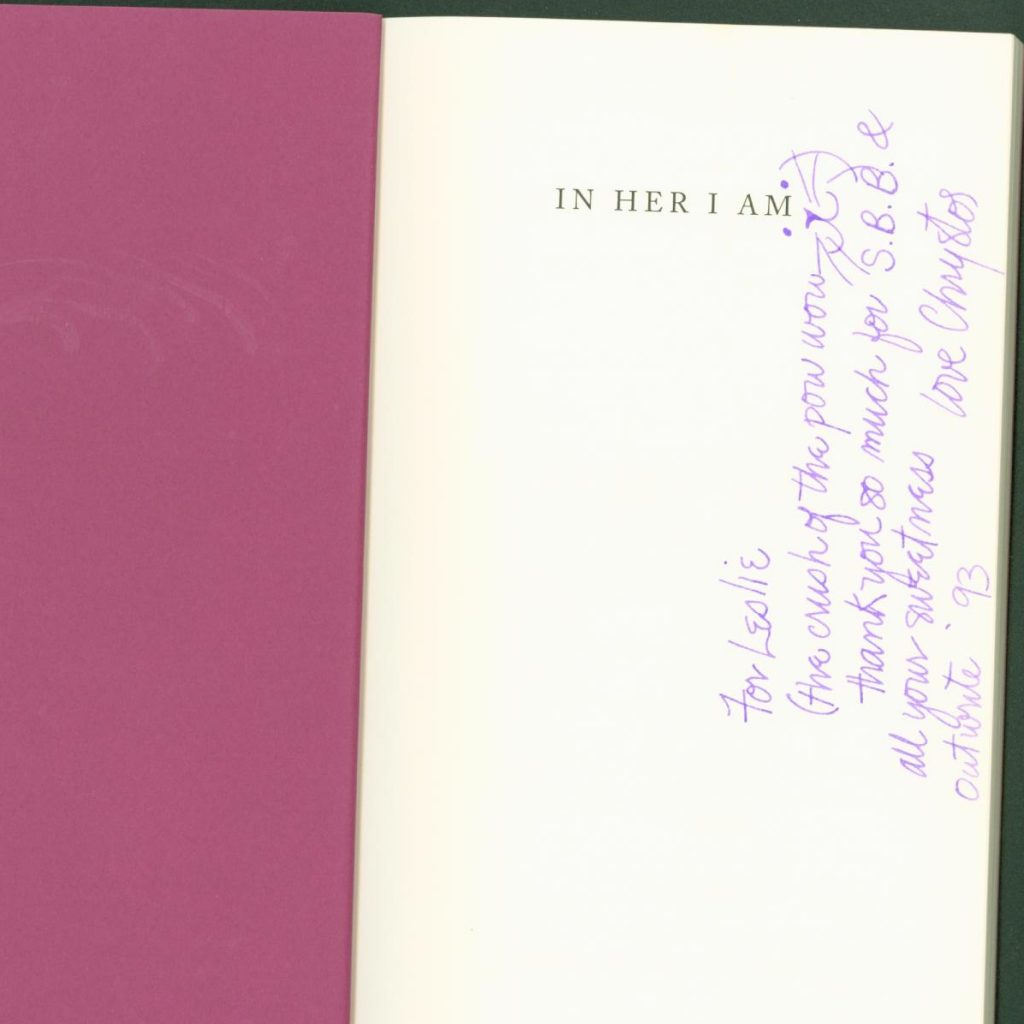 IN HER I AM
For Leslie
(the crush of the pow wow
thank you so much for S.B.B. &
all your sweetness love Chrystos
outwrite '93